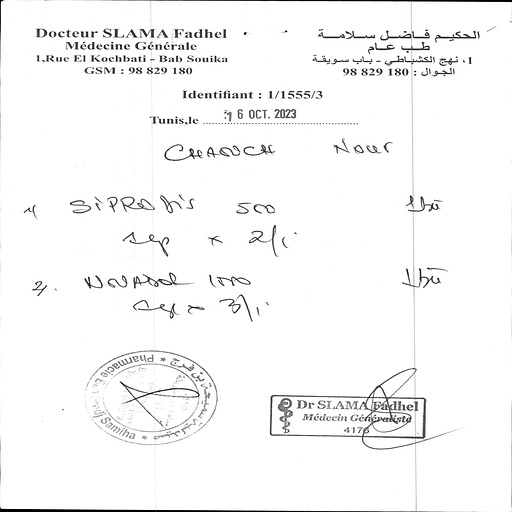 Docteur SLAMA Fadhel
Médecine Générale
1,Rue El Kochbati - Bab Souika
GSM : 98 829 180
الحكيم فاضل سلامة
طب عام
1، نهج الكشباطي - باب سويقة
الجوال : 180 829 98
Identifiant : 1/1555/3
Tunis,le 16 OCT. 2023
CHAOUCH Nour
1) SiPROfis 500
1 cp x 2/j
2) NOVADOL 1000
1 cp x 3/j
Pharmacie
Samiha
Dr SLAMA Fadhel
Médecin Généraliste